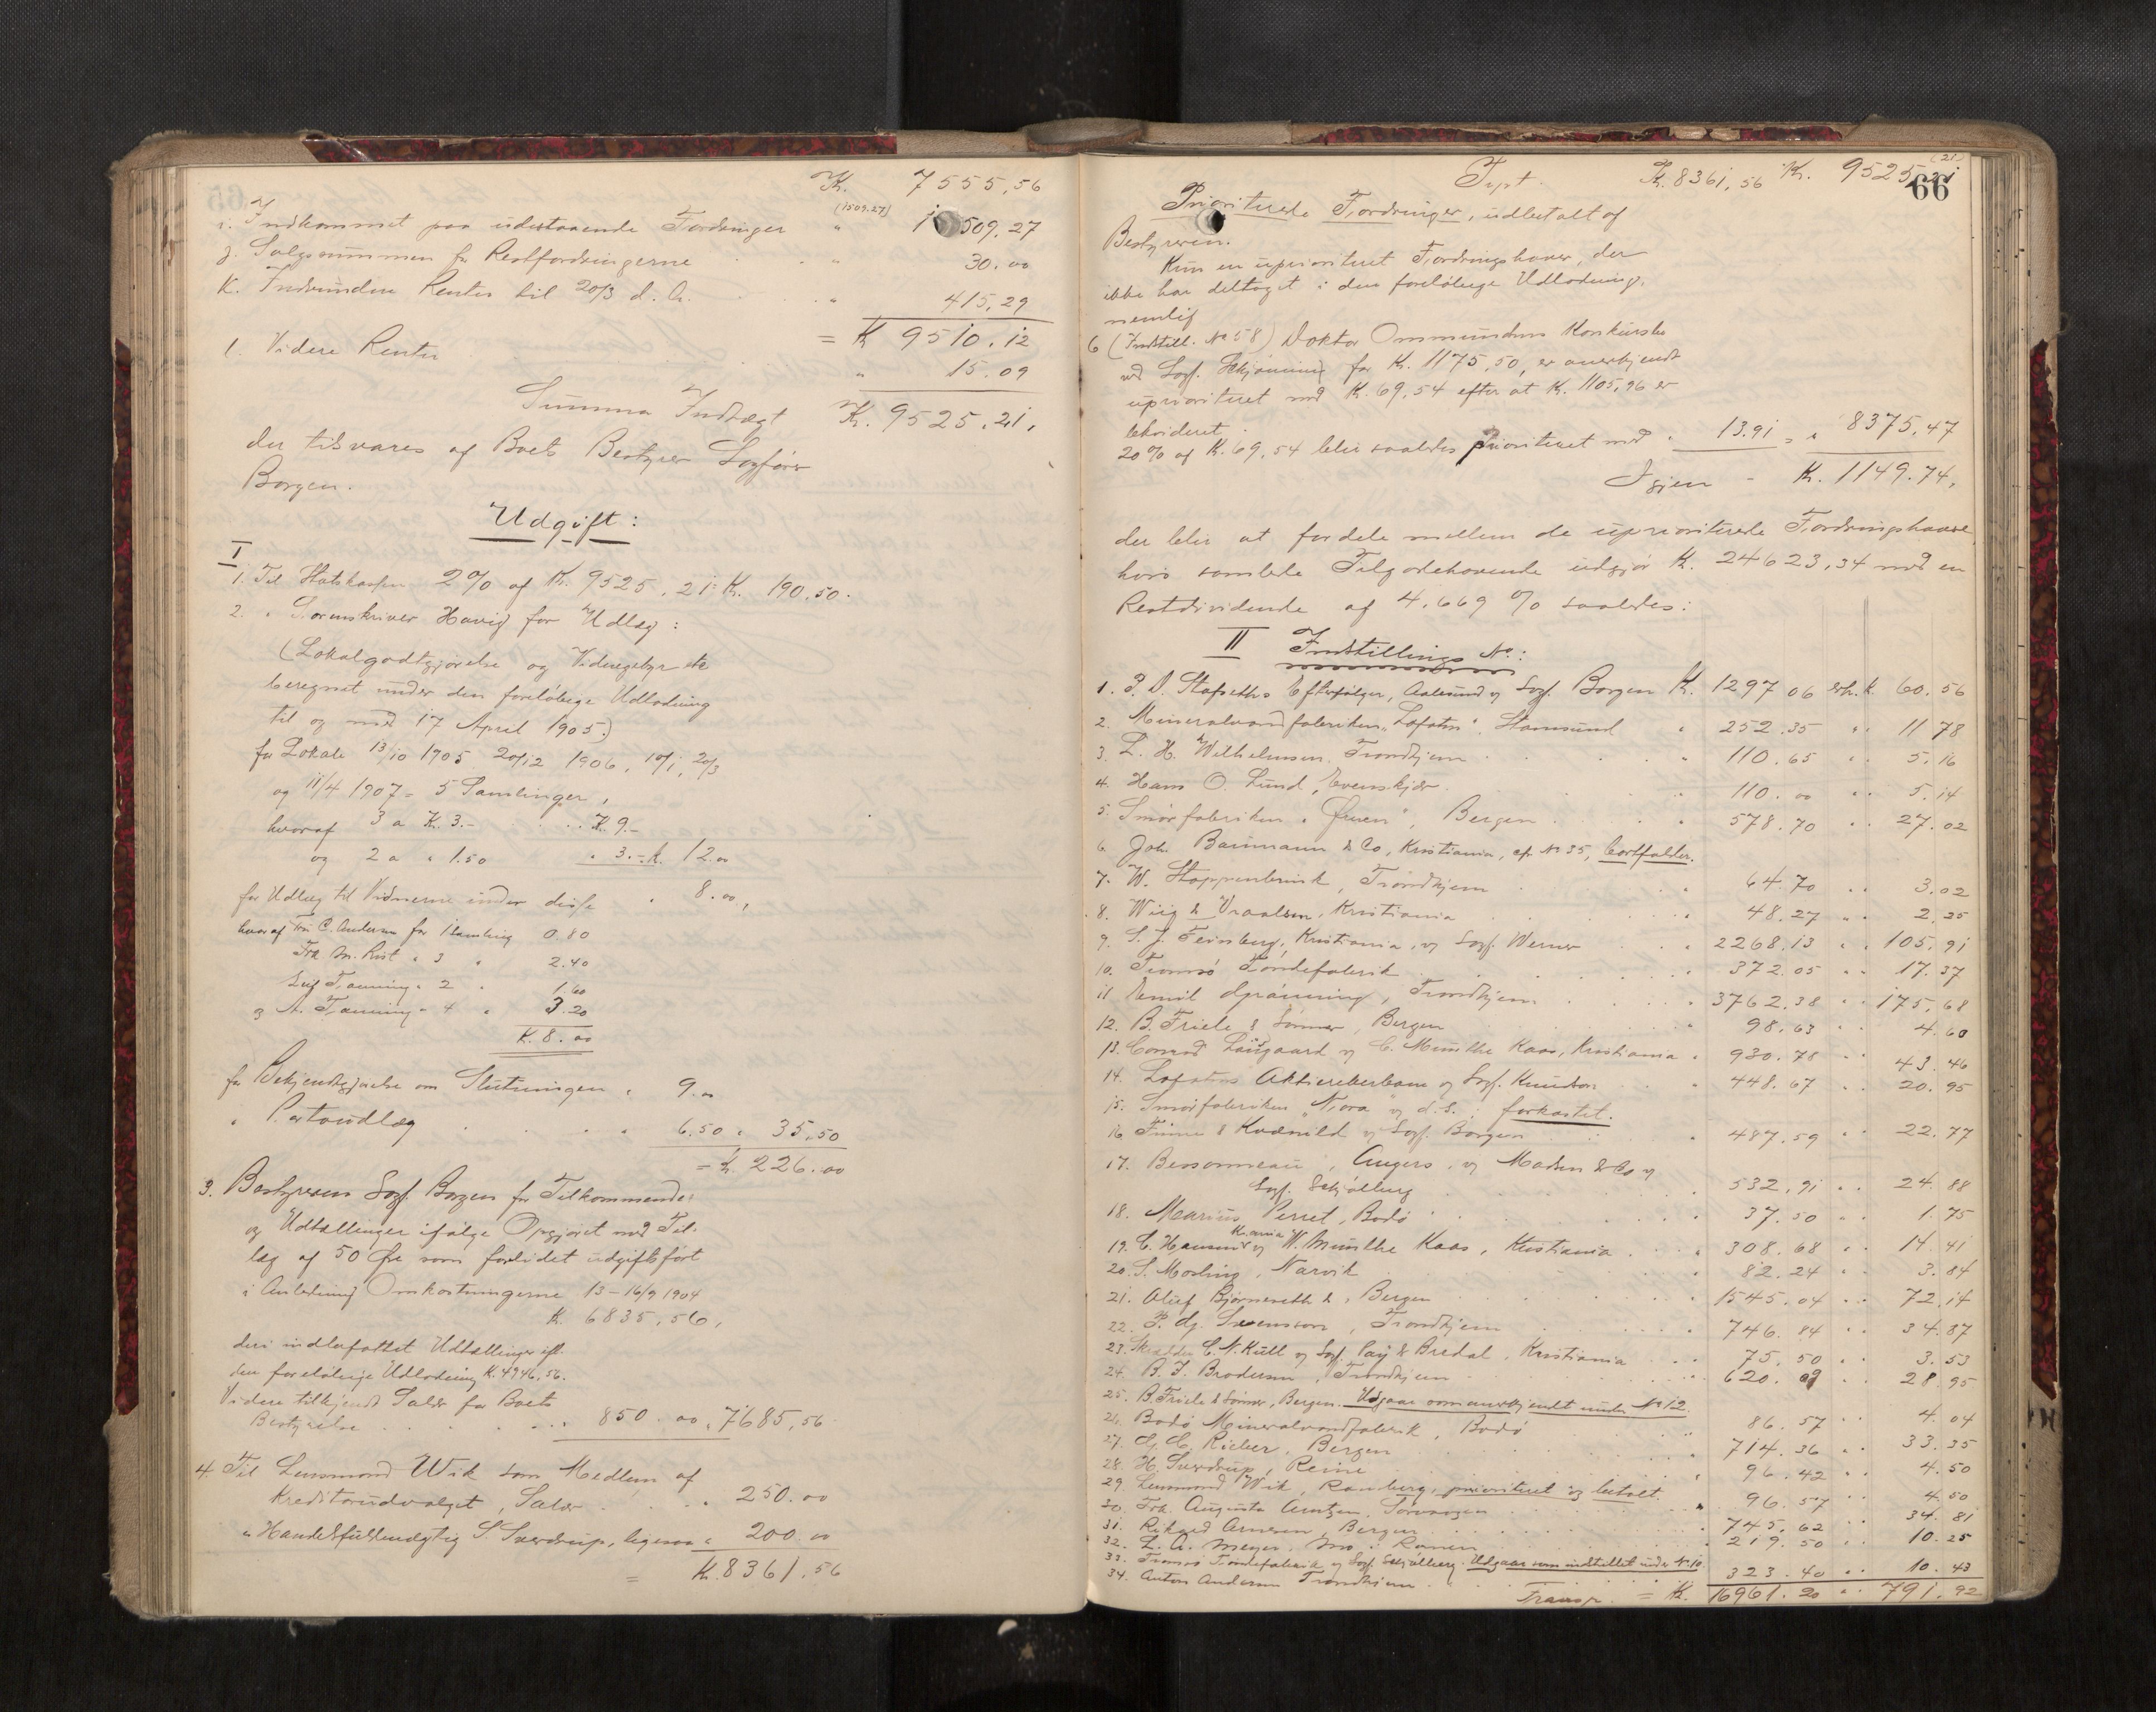 Kr. 7555,56
(1509.27)
i. Indkommet paa udestaaende Fordringer " 1509.27
j. Salgssummen for Restfordringerne " 30.00
k. Indvundne Renter til 20/3 d. A. " 415,29
= Kr. 9510.12
l. Videre Renter " 15.09
Summa Indtægt Kr. 9525.21.
der tilsvares af Boets Bestyrer Sagfører
Borgen.
Udgift:
I
1. Til Statskassen 2% af Kr. 9525,21: Kr. 190.50.
2. " Sorenskriver Havig for Udlæg:
(Lokalgodtgjørelse og Vidnegebyr etc
beregnet under den foreløbige Udlodning
til og med 17 April 1905.)
for Lokale 13/10 1905 20/12 1906, 10/1, 20/3
og 11/4 1907 = 5 Samlinger,
hvoraf 3 a Kr. 3.- . . . K 9.-
og 2 a " 1.50 " 3.- K. 12.00
for Udlæg til Vidnerne under disse " 8.00,
hvoraf Fru C. Andersen for 1 Samling 0.80
Frk M. Rist " 3 " 2.40
Leif Tanning " 2 " 1.60
og A. Tanning " 4 " 3.20
K. 8.00
for Bekjendtgjørelse om Slutningen " 9.00
" Portoudlæg . . . . 6.50 " 35.50
= K. 226.00
3. Bestyreren Sagf. Borgen for Tilkommende
og Udtællinger ifølge Opgjøret med Til-
læg af 50 Øre som forlidet udgiftsført
i Anledning Omkostningerne 13-16/9 1904
K. 6835,56,
deri indbefattet Udtællinger ifl.
den foreløbige Udlodning K. 4946,56.
Videre tilkjendt Salær for Boets
Bestyrelse . . . . . . 850.00 " 7685,56
4. Til Lensmand Wik som Medlem af
Kreditorudvalget, Salær . . . . 250.00
" Handelsfuldmægtig S. Sverdrup, ligesaa " 200.00
= Kr. 8361.56
(21)
Trpt. Kr. 8361,56 Kr. 9525,21
66
Prioriterede Fordringer, udbetalt af
Bestyreren.
Kun en uprioriteret Fordringshaver, der
ikke har deltaget i den foreløbige Udlodning,
nemlig
6 (Indstill. No 58) Doktor Ommundsens Konkursbo
ved Sagf. Skjønning for K. 1175,50, er anerkjendt
uprioriteret med K. 69,54 efter at K. 1105,96 er
likvideret.
20% af K. 69,54 blir saaledes prioriteret med " 13.91 = " 8375,47
Igjen - K. 1149.74,
der blir at fordele mellem de uprioriterede Fordringshavere
hvis samlede Tilgodehavende udgjør K. 24623,34 med en
Restdividende af 4,669 % saaledes:
II Indstillings No:
1. P. D. Stafseths Efterfølger, Aalesund v Sagf. Borgen K. 1297 06 erh. k. 60.56
2. Mineralvandfabriken "Lofoten", Stamsund " 252.35 " " 11 78
3. L. H. Wilhelmsen, Trondhjem . . . 110.65 " " 5.16
4. Hans O. Lund, Evenskjær . . . 110.00 " " 5.14
5. Smørfabriken "Ørnen", Bergen . . . 578.70 " " 27.02
6. Joh. Baumann & Co, Kristiania, cfr No 35, bortfalder.
7. W. Stoppenbrink, Trondhjem . . . 64.70 " " 3.02
8. Wiig & Vraalsen, Kristiania . . . 48.27 " " 2.25
9. S. J. Feinsberg, Kristiania, v Sagf. Werner . . . 2268.13 " " 105.91
10. Tromsø Tøndefabrik . . . 372.05 " " 17.37
11 Emil Grønning, Trondhjem . . . 3762.38 " " 175.68
12. B. Friele & Sønner, Bergen . . . 98.63 " " 4.60
13. Conrad Langaard v C. Munthe Kaas, Kristiania " 930.78 " " 43.46
14. Lofotens Aktiereberbane v Sagf. Knudsen . . . 448.67 " " 20.95
15. Smørfabriken "Nora" v d. s.: forkastet.
16 Finne & Kvænild v Sagf. Borgen . . . 487.59 " " 22.77
17. Bessonneau, Angers, v Madsen & Co v
Sagf. Schjølberg . . . 532,91 " " 24.88
18. Marius Perret, Bodø . . . 37.50 " " 1.75
Kr.ania
19. C. Hansen v W. Munthe Kaas, Kristiania . . . 308.68 " " 14.41
20. S. Mosling, Narvik . . . 82.24 " " 3.84
21. Oluf Bjørneseth &, Bergen . . . 1545.04 " " 72.14
22. P. G. Svensson, Trondhjem . . . 746.84 " " 34.87
23. Skrædder C. N. Kull v Sagf. Paij & Bredal, Kristiania . . . 75.50 " " 3.53
24. B. J. Brodersen, Trondhjem . . . 620.09 " " 28.95
25. B. Friele & Sønner, Bergen. Udgaar som anerkjendt under No 12.
26. Bodø Mineralvandfabrik, Bodø . . . 86.57 " " 4.04
27. G. C. Rieber, Bergen . . . 714.36 " " 33.35
28. H. Sverdrup, Reine . . . 96.42 " " 4.50
29. Lensmand Wik, Ramberg, prioriteret og betalt.
30. Frk. Augusta Arntzen, Sørvaagen . . . 96.57 " " 4.50
31. Rikard Arnesen, Bergen . . . 745.62 " " 34.81
32. L. A. Meyer, Mo i Ranen . . . 219.50 " " 10.25
33. Tromsø Tøndefabrik v Sagf. Schjølberg. Udgaar som indstillet under No 10.
34. Anton Andersen Trondhjem . . . 323.40 " " 10.43
Transp. = K. 16961.20 " " 791.92